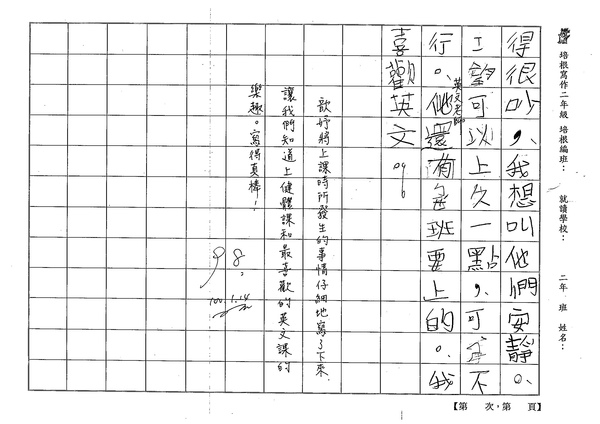 培根寫作二年級 培根編班： 就讀學校： 二年 班 姓名：
得很吵，我想叫他們安靜。
可以上久一點，可 不
行。他還有 班要上的。我
英文老師
喜歡英文
歆妤將上課時所發生的事情仔細地寫了下來，
讓我們知道上健體課和最喜歡的英文課的
樂趣。寫得真棒！
98
100.1.14
【第 次，第 頁】